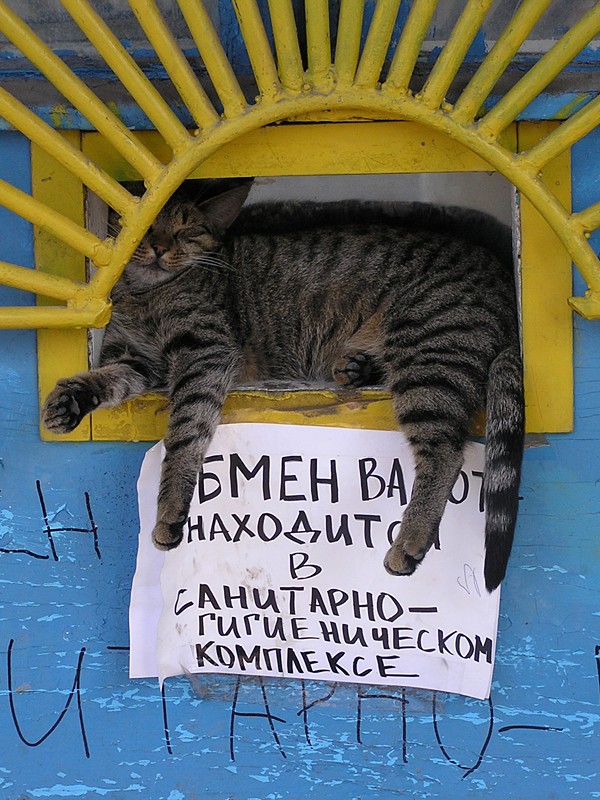 ОБМЕН ВАЛЮТ-
НАХОДИТСЯ
В
САНИТАРНО-
ГИГИЕНИЧЕСКОМ
КОМПЛЕКСЕ
ИТАРНО-